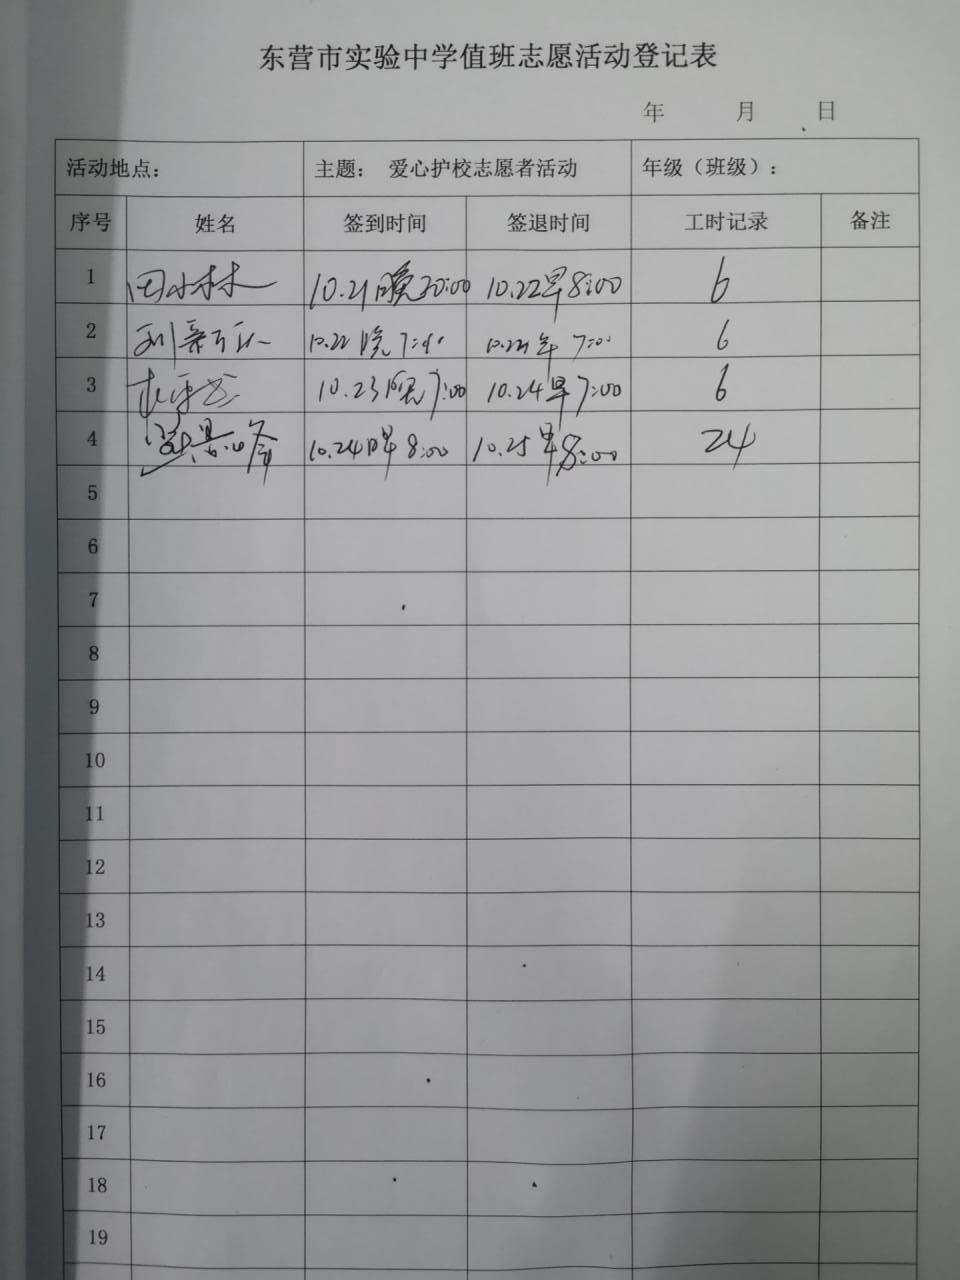 东营市实验中学值班志愿活动登记表
年 月 日
活动地点： 主题： 爱心护校志愿者活动 年级（班级）：
序号 姓名 签到时间 签退时间 工时记录 备注
1 田林林 10.21晚20:00 10.22早8:00 6
2 10.22晚 10.23早 7:00 6
3 10.23晚7:00 10.24早7:00 6
4 10.24早8:00 10.25早8:00 24
5
6
7
8
9
10
11
12
13
14
15
16
17
18
19